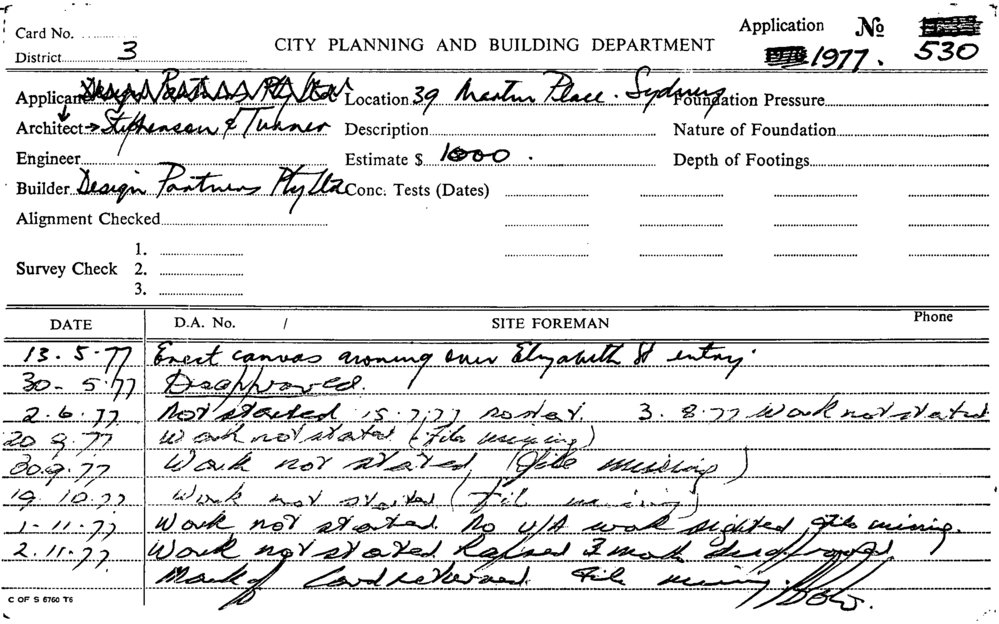 Card No.
District 3
CITY PLANNING AND BUILDING DEPARTMENT
Application No 1977. 530
Applicant Design Partners Pty Ltd Location 39 Martin Place. Sydney Foundation Pressure
Architect → Stephenson & Turner Description Nature of Foundation
Engineer Estimate $ 1000. Depth of Footings
Builder Design Partners Pty Ltd Conc. Tests (Dates)
Alignment Checked
1.
Survey Check 2.
3.
DATE D.A. No. / SITE FOREMAN Phone
13.5.77 Erect canvas awning over Elizabeth St entry.
30-5.77 Disapproved.
2.6.77 Not started 15.7.77 no start. 3.8.77 Work not started
20 9.77 Work not started (File missing)
30.9.77 Work not started (File missing)
19.10.77 Work not started (File missing)
1-11.77 Work not started. No U/A work sighted File missing.
2.11.77 Work not started. Lapsed
Card returned. File missing.
C OF S 5760 T6